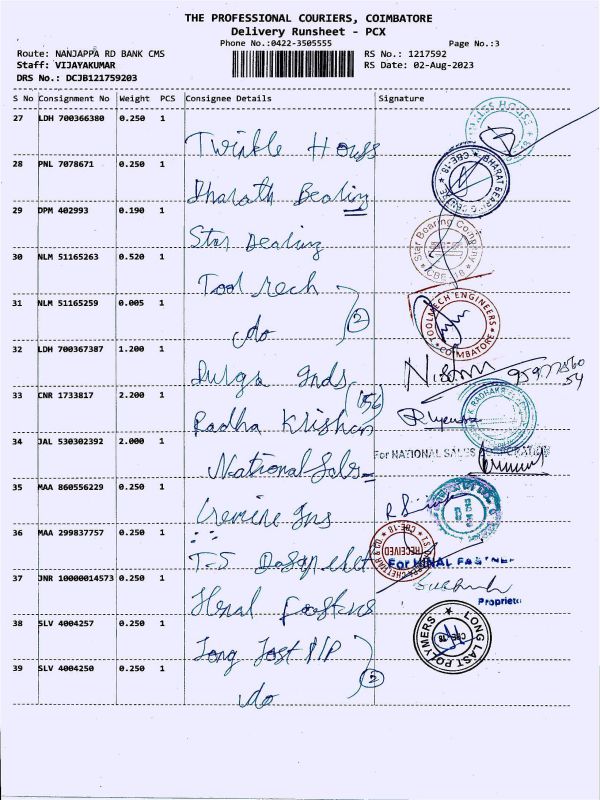 THE PROFESSIONAL COURIERS, COIMBATORE
Delivery Runsheet - PCX
Phone No.:0422-3505555
Page No.:3
Route: NANJAPPA RD BANK CMS
RS No.: 1217592
Staff: VIJAYAKUMAR
RS Date: 02-Aug-2023
DRS No.: DCJB121759203
S No Consignment No Weight PCS Consignee Details Signature
27 LDH 700366380 0.250 1
Twinkle House
28 PNL 7078671 0.250 1
Bharath Bearing
BHARAT BEARING CENTRE CBE-18
29 DPM 402993 0.190 1
Star Bearing
Star Bearing Company CBE-18
30 NLM 51165263 0.520 1
Tool Mech
31 NLM 51165259 0.005 1
do 2
TOOLMECH ENGINEERS COIMBATORE
32 LDH 700367387 1.200 1
Durga Inds
33 CNR 1733817 2.200 1
Radha Krishan (156)
34 JAL 530302392 2.000 1
National Sales
For NATIONAL SALES CORPORATION
35 MAA 860556229 0.250 1
36 MAA 299837757 0.250 1
RECEIVED
CBE-18
37 JNR 10000014573 0.250 1
Hinal Fastens
For HINAL FASTNE
Proprieto
38 SLV 4004257 0.250 1
Long Last P/P
LONG LAST POLYMERS CBE-18
39 SLV 4004250 0.250 1
do 2